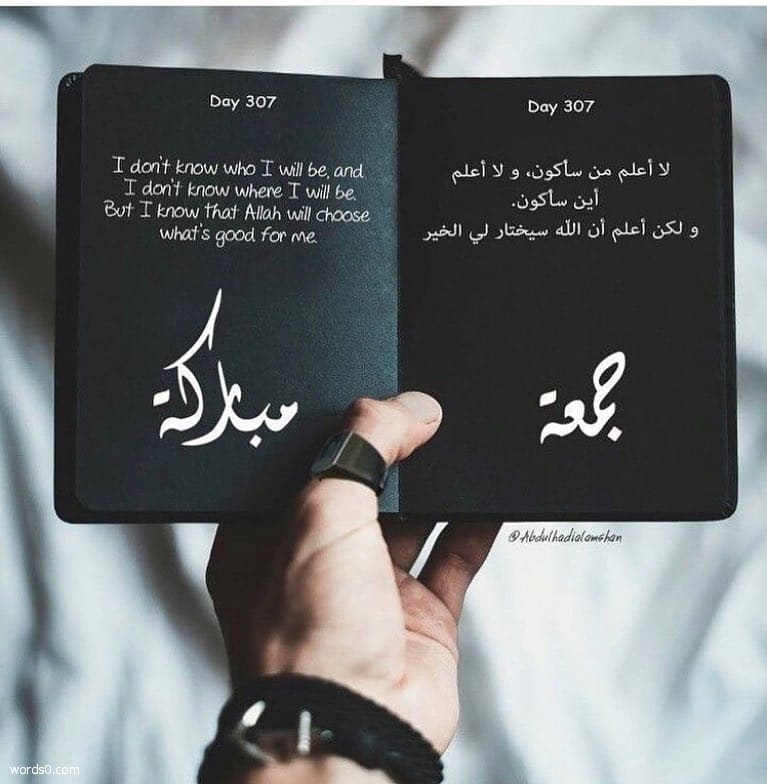 Day 307
I don't know who I will be, and
I don't know where I will be.
But I know that Allah will choose
what's good for me.
Day 307
لا أعلم من سأكون، و لا أعلم
أين سأكون.
و لكن أعلم أن الله سيختار لي الخير
جمعة
مباركة
@Abdulhadialamshan
words0.com